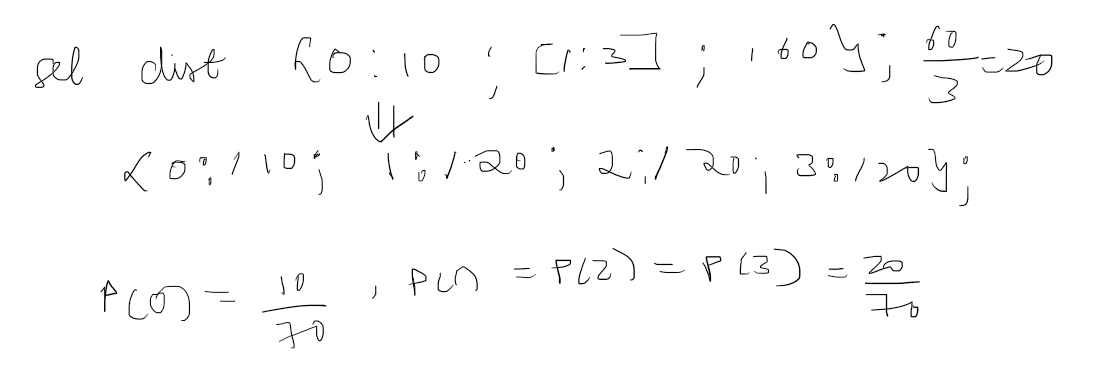 sel dist {0:10 ; [1:3] ; 160}; 60/3=20
⇓
{0:/10; 1:/20; 2:/20; 3:/20};
P(0) = 10/70 , P(1) = P(2) = P(3) = 20/70